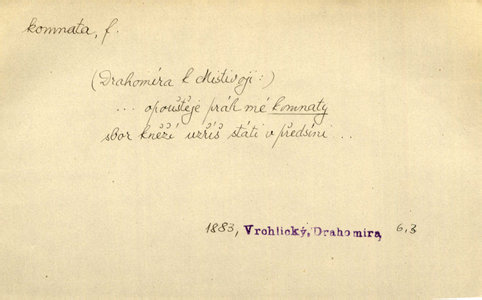 komnata, f.
(Drahomíra k Mstivoji:)
... opouštěje práh mé komnaty
sbor kněží uzříš státi v předsíni ...
1883, Vrchlický, Drahomíra, 6,3